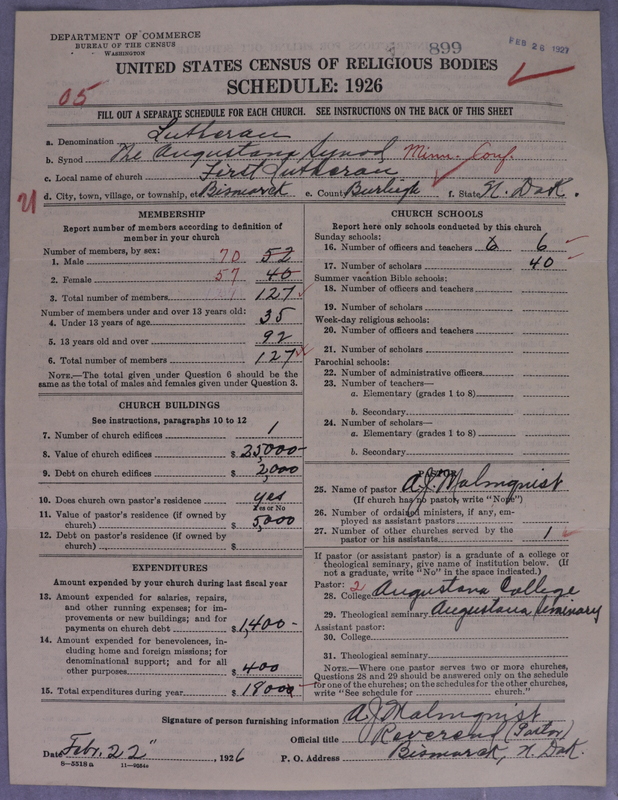 DEPARTMENT OF COMMERCE
BUREAU OF THE CENSUS
WASHINGTON
899
FEB 26 1927
UNITED STATES CENSUS OF RELIGIOUS BODIES
SCHEDULE: 1926
05
FILL OUT A SEPARATE SCHEDULE FOR EACH CHURCH. SEE INSTRUCTIONS ON THE BACK OF THIS SHEET
a. Denomination Lutheran
b. Synod The Augustana Synod, Minn. Conf.
c. Local name of church First Lutheran
d. City, town, village, or township, etc Bismarck e. County Burleigh f. State N. Dak.
MEMBERSHIP
Report number of members according to definition of
member in your church
Number of members, by sex:
1. Male 70 52
2. Female 57 40
3. Total number of members 127
Number of members under and over 13 years old:
4. Under 13 years of age 35
5. 13 years old and over 92
6. Total number of members 127
NOTE.—The total given under Question 6 should be the
same as the total of males and females given under Question 3.
CHURCH BUILDINGS
See instructions, paragraphs 10 to 12
7. Number of church edifices 1
8. Value of church edifices $ 25,000-
9. Debt on church edifices $ 2,000
10. Does church own pastor's residence yes
Yes or No
11. Value of pastor's residence (if owned by
church) $ 5,000
12. Debt on pastor's residence (if owned by
church) $
EXPENDITURES
Amount expended by your church during last fiscal year
13. Amount expended for salaries, repairs,
and other running expenses; for im-
provements or new buildings; and for
payments on church debt $ 1,400-
14. Amount expended for benevolences, in-
cluding home and foreign missions; for
denominational support; and for all
other purposes $ 400
15. Total expenditures during year $ 1800
CHURCH SCHOOLS
Report here only schools conducted by this church
Sunday schools:
16. Number of officers and teachers 6 6
17. Number of scholars 40
Summer vacation Bible schools:
18. Number of officers and teachers
19. Number of scholars
Week-day religious schools:
20. Number of officers and teachers
21. Number of scholars
Parochial schools:
22. Number of administrative officers
23. Number of teachers—
a. Elementary (grades 1 to 8)
b. Secondary
24. Number of scholars—
a. Elementary (grades 1 to 8)
b. Secondary
PASTOR
25. Name of pastor A. J. Malmquist
(If church has no pastor, write "None")
26. Number of ordained ministers, if any, em-
ployed as assistant pastors
27. Number of other churches served by the
pastor or his assistants 1
If pastor (or assistant pastor) is a graduate of a college or
theological seminary, give name of institution below. (If
not a graduate, write "No" in the space indicated.)
Pastor: 2
28. College Augustana College
29. Theological seminary Augustana Seminary
Assistant pastor:
30. College
31. Theological seminary
NOTE.—Where one pastor serves two or more churches,
Questions 28 and 29 should be answered only on the schedule
for one of the churches; on the schedules for the other churches,
write "See schedule for church."
Signature of person furnishing information A. J. Malmquist
Official title Reverend (Pastor)
Date Febr. 22", 1926 P. O. Address Bismarck, N. Dak.
8-5518 a